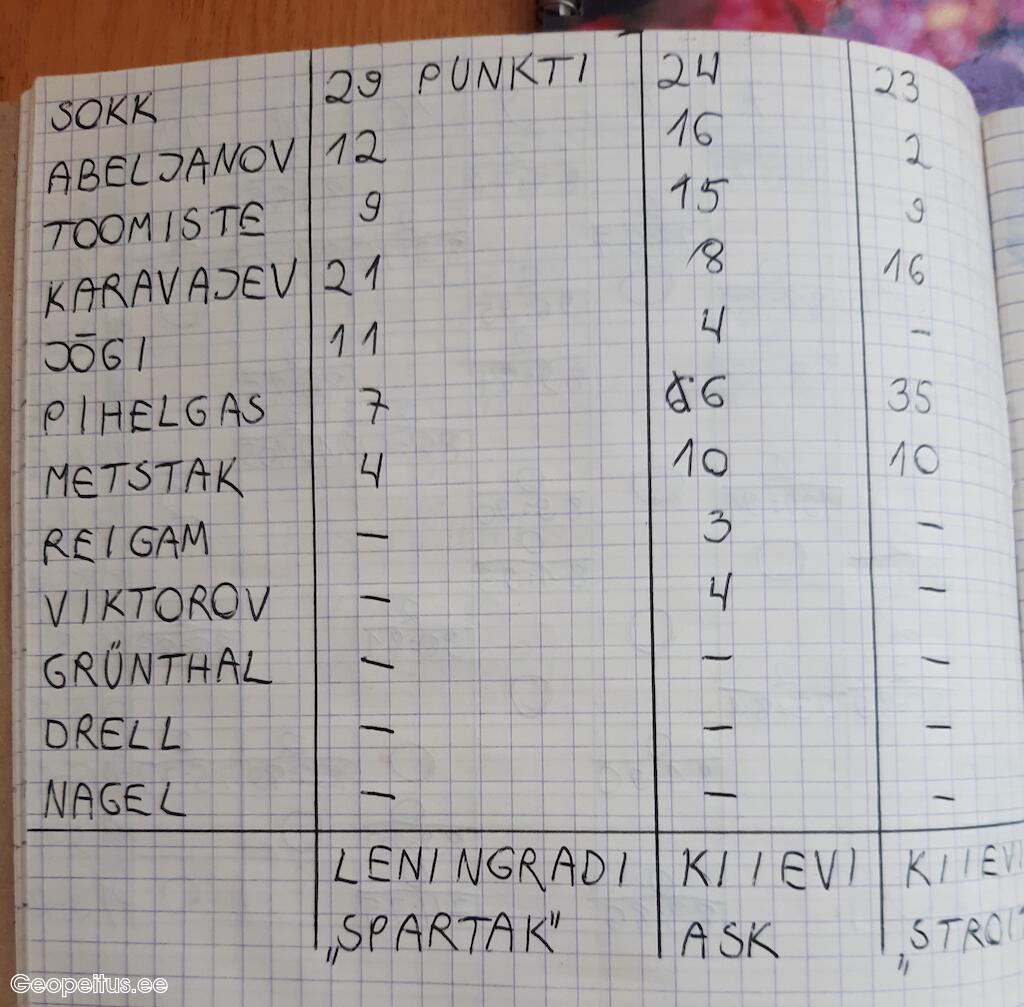 SOKK 29 PUNKTI 24 23
ABELJANOV 12 16 2
TOOMISTE 9 15 9
KARAVAJEV 21 8 16
JÕGI 11 4 –
PIHELGAS 7 6 35
METSTAK 4 10 10
REIGAM – 3 –
VIKTOROV – 4 –
GRÜNTHAL – – –
DRELL – – –
NAGEL – – –
LENINGRADI KIIEVI KIIEVI
„SPARTAK" ASK „STROIT
Geopeitus.ee